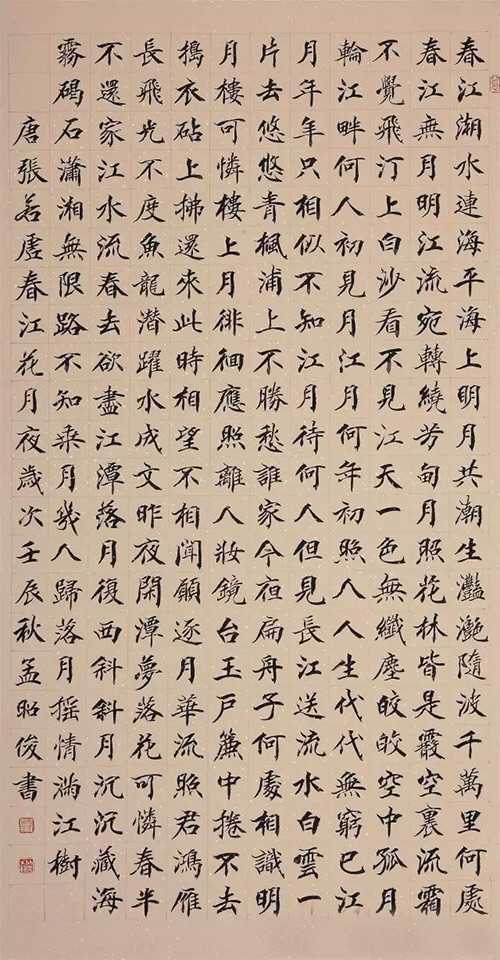 春江湖水連海平海上明月共潮生灩灧隨波千萬里何處
春江無月明江流宛轉繞芳甸月照花林皆是霰空裏流霜
不覺飛汀上白沙看不見江天一色無纖塵皎皎空中孤月
輪江畔何人初見月江月何年初照人人生代代無窮已江
月年年只相似不知江月待何人但見長江送流水白雲一
片去悠悠青楓浦上不勝愁誰家今夜扁舟子何處相識明
月樓可憐樓上月徘徊應照離人妝鏡台玉戶簾中捲不去
搗衣砧上拂還來此時相望不相聞願逐月華流照君鴻雁
長飛光不度魚龍潛躍水成文昨夜閑潭夢落花可憐春半
不還家江水流春去欲盡江潭落月復西斜斜月沉沉藏海
霧碣石瀟湘無限路不知乘月幾人歸落月搖情滿江樹
唐張若虛春江花月夜歲次壬辰秋孟昭俊書